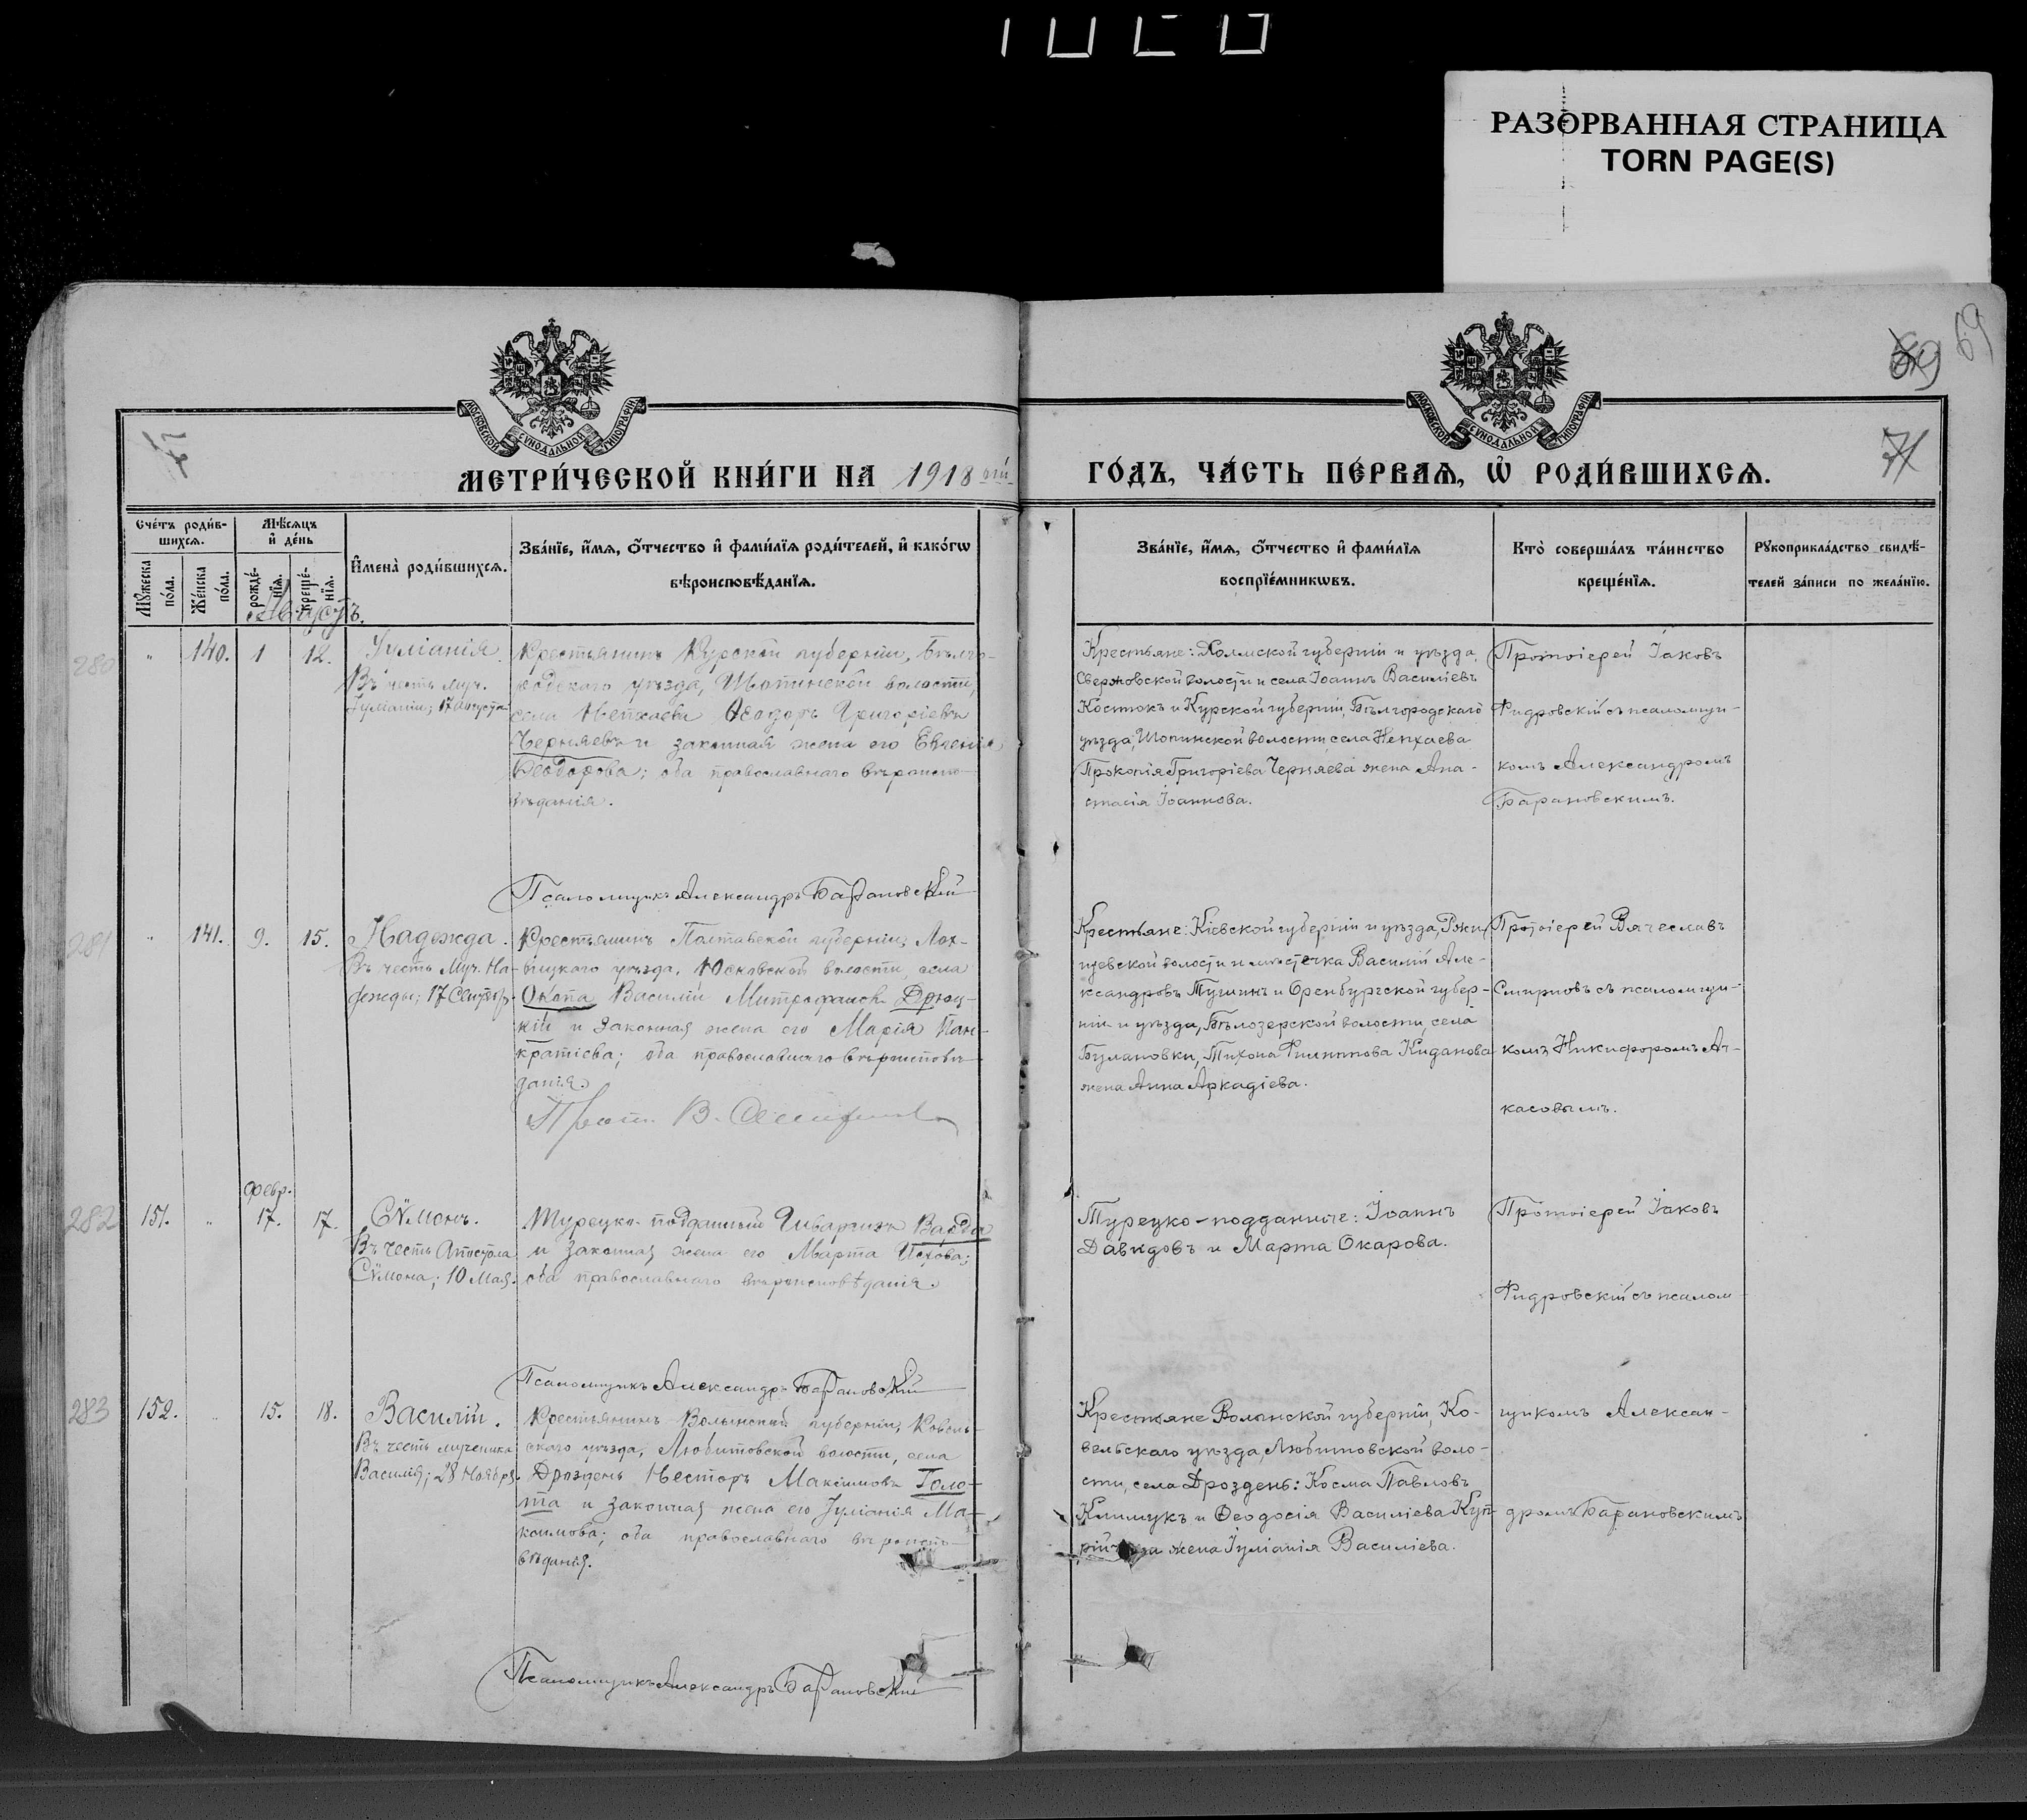 РАЗОРВАННАЯ СТРАНИЦА
TORN PAGE(S)
69
69
71
МОСКОВСКОЙ СѴНОДАЛЬНОЙ ТИПОГРАФІИ
МОСКОВСКОЙ СѴНОДАЛЬНОЙ ТИПОГРАФІИ
МЕТРИ́ЧЕСКОЙ КНИ́ГИ НА 1918 ый
ГО́ДЪ, ЧА́СТЬ ПЕ́РВАѦ, Ѽ РОДИ́ВШИХСѦ.
Сче́тъ роди́в-
шихсѧ.
Мѣ́сѧцъ
и҆ де́нь
Мꙋ́жеска
по́ла.
Же́нска
по́ла.
рожде́-
нїѧ.
креще́-
нїѧ.
И҆мена̀ роди́вшихсѧ.
Зва́нїе, и҆́мѧ, о҆́тчество и҆ фами́лїѧ роди́телей, и҆ како́гѡ
вѣроисповѣ́данїѧ.
Зва́нїе, и҆́мѧ, о҆́тчество и҆ фами́лїѧ
воспрїе́мникѡвъ.
Кто̀ соверша́лъ та́инство
креще́нїѧ.
Рꙋкоприкла́дство свидѣ́-
телей за́писи по жела́нїю.
Августъ.
280
" 140. 1 12.
Іуліанія.
Въ честь муч.
Іуліаніи; 17 августа
Крестьянинъ Курской губерніи, Бѣлго-
родскаго уѣзда, Шопинской волости,
села Непхаева Ѳеодоръ Григоріевъ
Черняевъ и законная жена его Евгенія
Ѳеодорова; оба православнаго вѣроиспо-
вѣданія.
Псаломщикъ Александръ Барановскій
Крестьяне: Холмской губерніи и уѣзда,
Свержовской волости и села Іоаннъ Василіевъ
Костюкъ и Курской губерніи, Бѣлгородскаго
уѣзда, Шопинской волости, села Непхаева
Прокопія Григоріева Черняева жена Ана-
стасія Іоаннова.
Протоіерей Іаковъ
Фидровскій съ псаломщи-
комъ Александромъ
Барановскимъ.
281
" 141. 9. 15.
Надежда.
Въ честь Муч. На-
дежды; 17 Сентябр.
Крестьянинъ Полтавской губерніи, Лох-
вицкаго уѣзда, Юсковской волости, села
Окопа Василій Митрофановъ Дрюц-
кій и законная жена его Марія Пан-
кратіева; оба православнаго вѣроисповѣ-
данія.
Прот. В. Смирновъ
Крестьяне: Кіевской губерніи и уѣзда, Ржи-
щевской волости и мѣстечка Василій Але-
ксандровъ Тушинъ и Оренбургской губер-
ніи и уѣзда, Бѣлозерской волости, села
Булановки, Тихона Филиппова Киданова
жена Анна Аркадіева.
Протоіерей Вячеславъ
Смирновъ съ псаломщи-
комъ Никифоромъ Ас-
касовымъ.
282
151. " февр. 17. 17.
Сѵмонъ.
Въ честь Апостола
Сѵмона; 10 Мая.
Турецко-подданный Гиваргизъ Варда
и законная жена его Марта Исхова;
оба православнаго вѣроисповѣданія.
Псаломщикъ Александръ Барановскій
Турецко-подданные: Іоаннъ
Давидовъ и Марта Окарова.
Протоіерей Іаковъ
Фидровскій съ псалом-
283
152. " 15. 18.
Василій.
Въ честь мученика
Василія; 28 Ноября.
Крестьянинъ Волынской губерніи, Ковель-
скаго уѣзда, Любитовской волости, села
Дроздень Несторъ Максимовъ Голо-
та и законная жена его Іуліанія Ма-
ксимова; оба православнаго вѣроиспо-
вѣданія.
Псаломщикъ Александръ Барановскій
Крестьяне Волынской губерніи, Ко-
вельскаго уѣзда, Любитовской воло-
сти, села Дроздень: Косма Павловъ
Климукъ и Ѳеодосія Василіева Куп-
жена Іуліанія Василіева.
щикомъ Алексан-
дромъ Барановскимъ